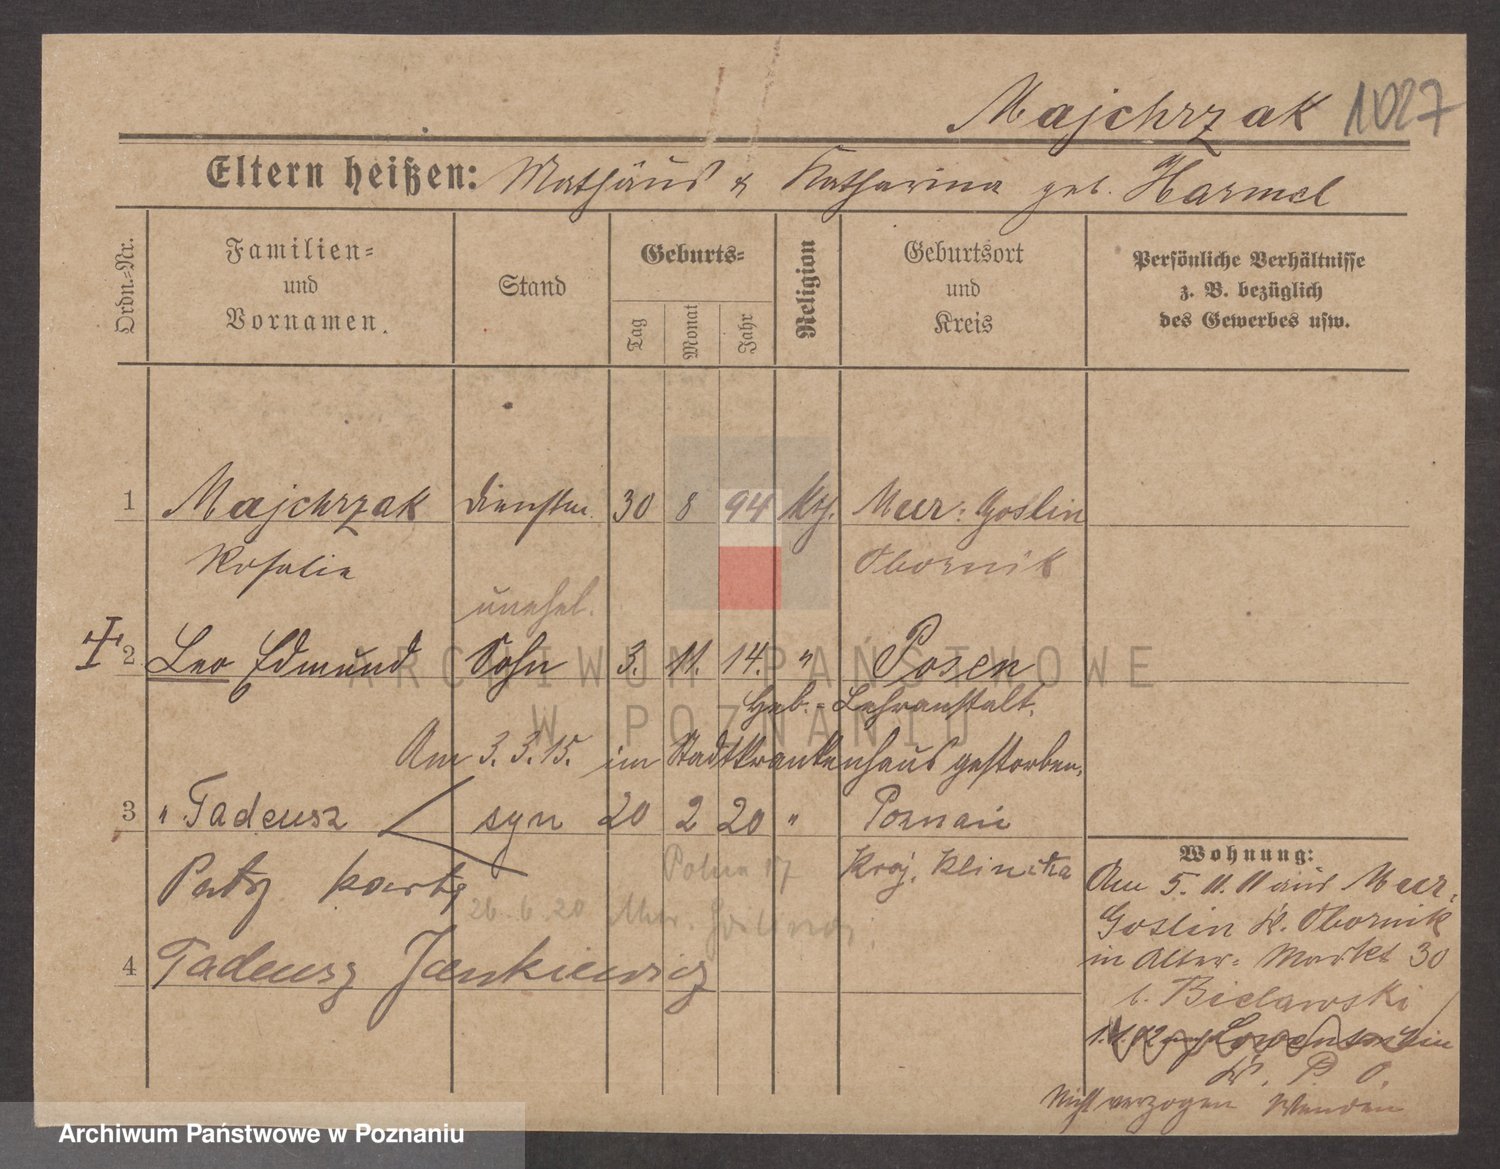 Majchrzak 1027
Eltern heißen: Mathäus & Katharina geb. Harmel
Ordn.-Nr.
Familien-
und
Vornamen.
Stand
Geburts-
Tag
Monat
Jahr
Religion
Geburtsort
und
Kreis
Persönliche Verhältnisse
z. B. bezüglich
des Gewerbes usw.
1 Majchrzak Dienstm. 30 8 94 Kth. Mur: Goslin
Rosalie Obornik
unehel.
2 Leo Edmund Sohn 3. 11. 14. " Posen
Heb.-Lehranstalt.
Am 3.3.15. im Stadtkrankenhaus gestorben.
3 " Tadeusz syn 20 2 20 " Poznań
Kraj. Klinika
Patrz kartę
26.6.20
4 Tadeusz Jankiewicz
Wohnung:
Am 5.11.11 aus Mur:
Goslin K. Obornik
in Alter: Markt 30
b. Bielawski
W. P. O.
Nicht verzogen Wenden
ARCHIWUM PAŃSTWOWE
W POZNANIU
Archiwum Państwowe w Poznaniu